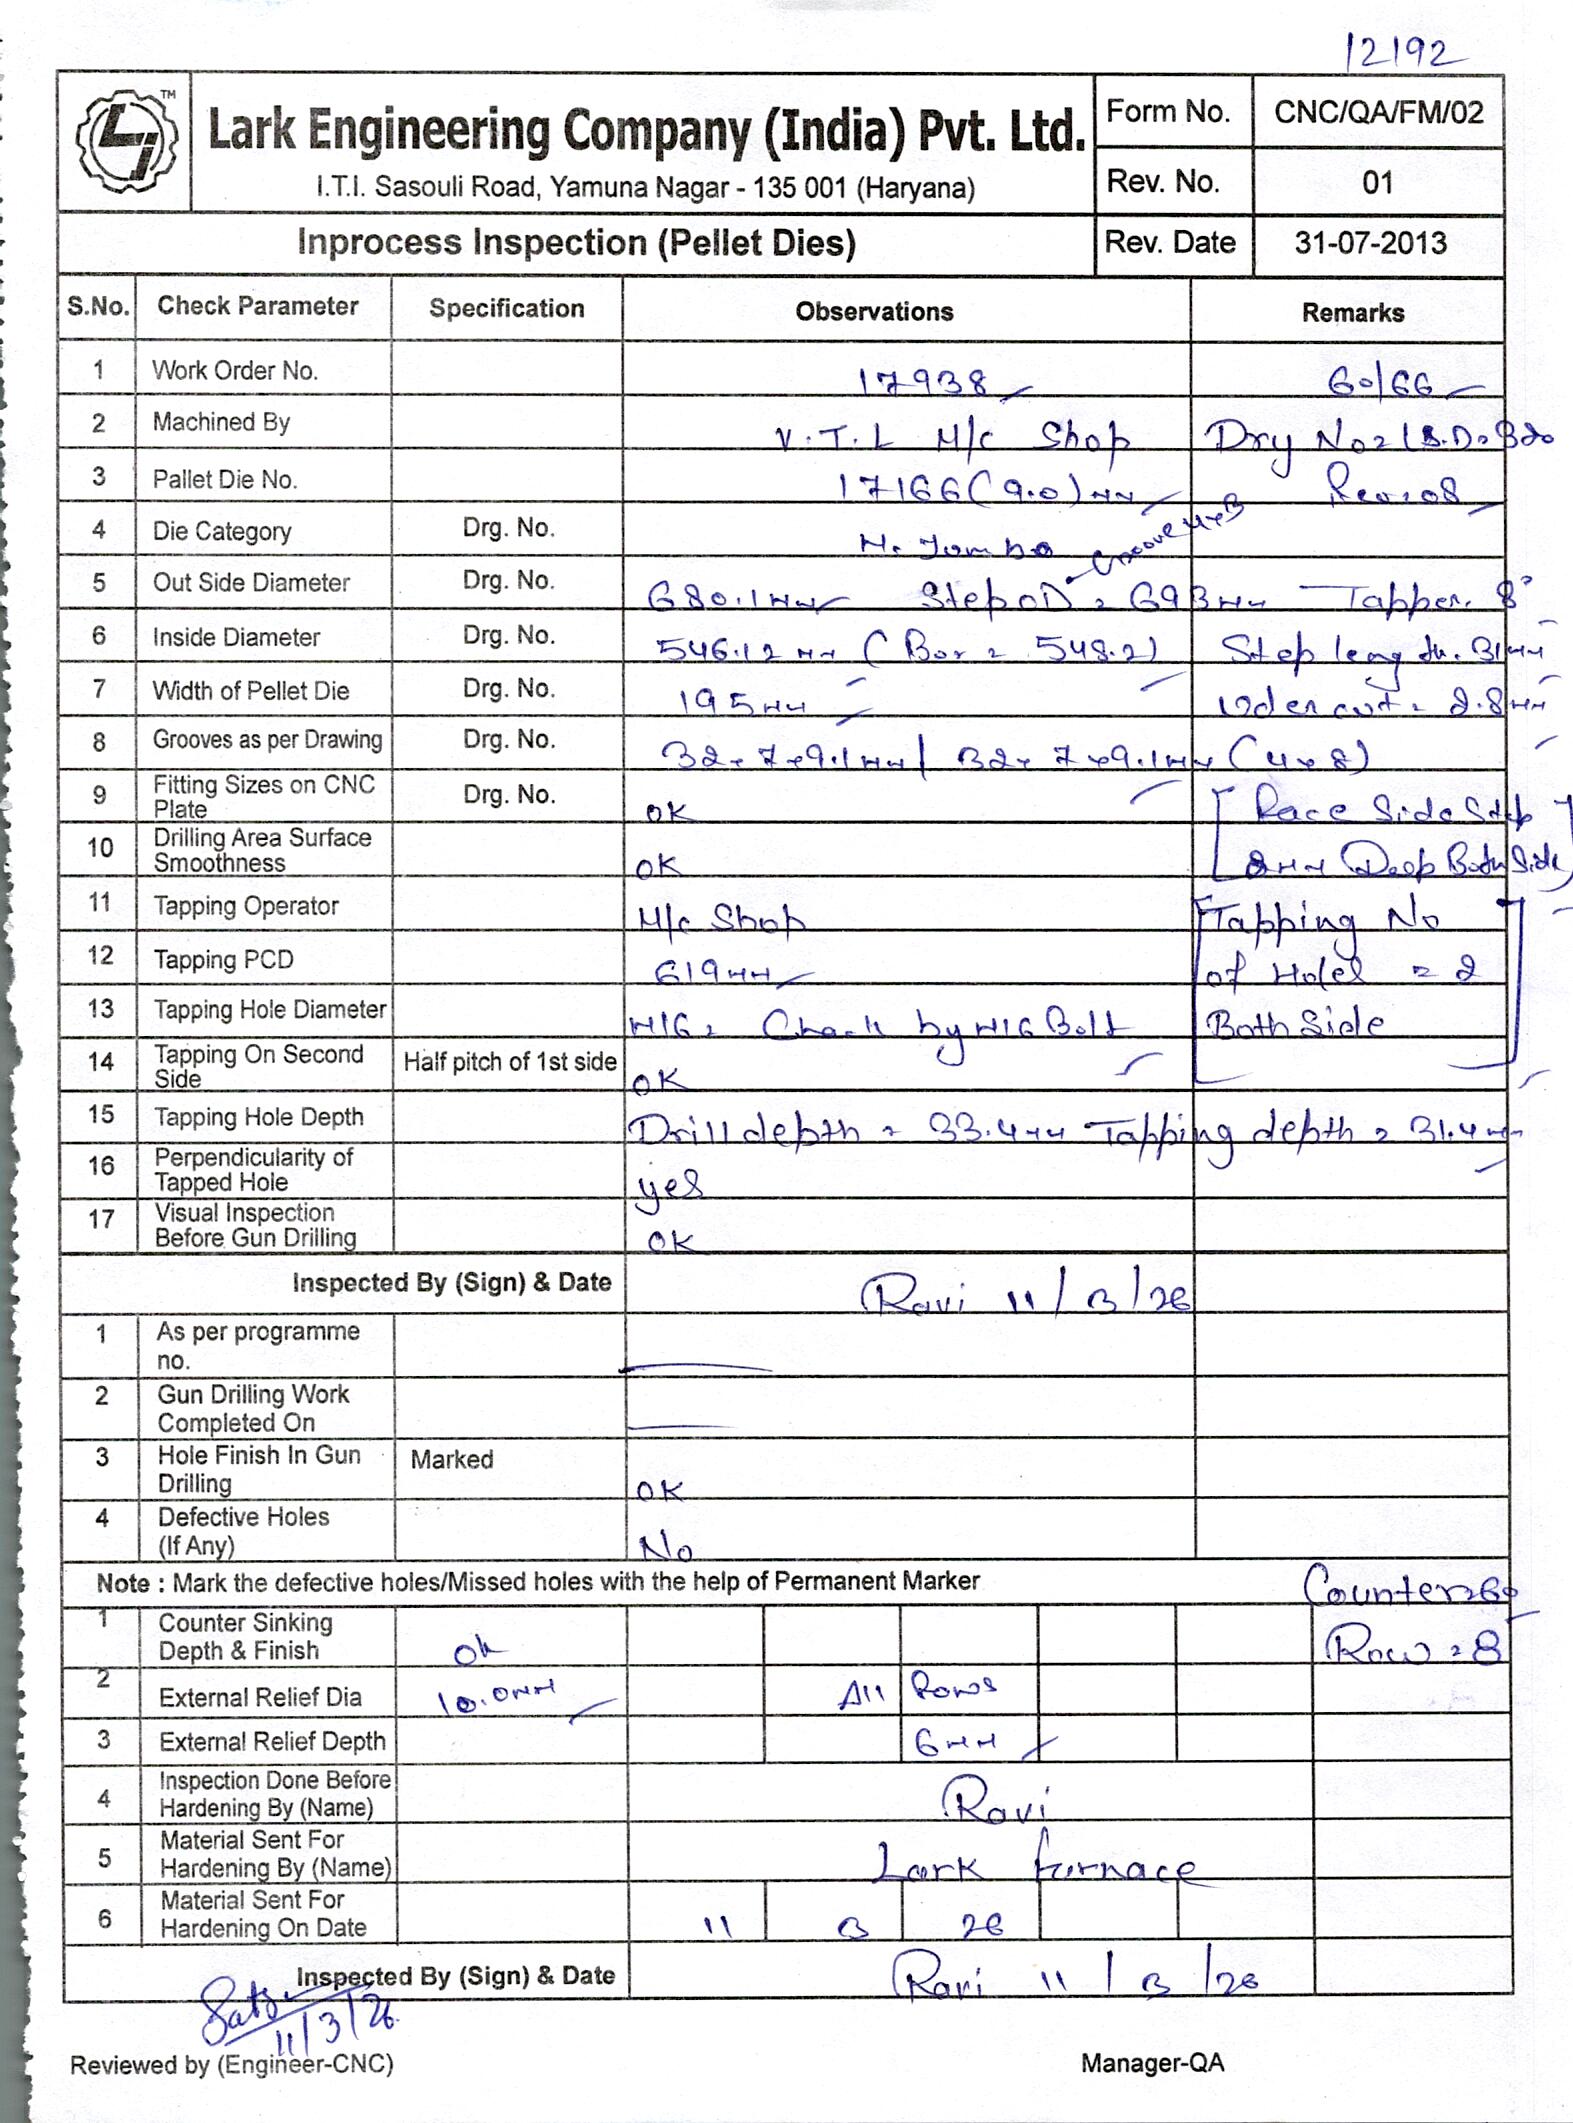 12192
TM
Lark Engineering Company (India) Pvt. Ltd.
I.T.I. Sasouli Road, Yamuna Nagar - 135 001 (Haryana)
Form No. CNC/QA/FM/02
Rev. No. 01
Inprocess Inspection (Pellet Dies) Rev. Date 31-07-2013
S.No. Check Parameter Specification Observations Remarks
1 Work Order No. 17938 60/66
2 Machined By V.T.L M/c Shop Dry No
3 Pallet Die No. 17166 (9.0) mm Rev: 08
4 Die Category Drg. No. Groove 4x3
5 Out Side Diameter Drg. No. 680.1mm Step OD = 693mm Tapper. 8°
6 Inside Diameter Drg. No. 546.12 mm (Bor = 548.2) Step length. 31mm
7 Width of Pellet Die Drg. No. 195mm Udercut = 2.8mm
8 Grooves as per Drawing Drg. No. 32x7x9.1mm / 32x7x9.1mm (4x8)
9 Fitting Sizes on CNC Plate Drg. No. OK [Race Side Step
10 Drilling Area Surface Smoothness OK 2mm Deep Both Side]
11 Tapping Operator M/c Shop [Tapping No
12 Tapping PCD 619mm of Holes = 2
13 Tapping Hole Diameter M16 = Check by M16 Bolt Both Side]
14 Tapping On Second Side Half pitch of 1st side OK
15 Tapping Hole Depth Drill depth = 33.4mm Tapping depth = 31.4mm
16 Perpendicularity of Tapped Hole yes
17 Visual Inspection Before Gun Drilling OK
Inspected By (Sign) & Date Ravi 11/3/26
1 As per programme no.
2 Gun Drilling Work Completed On
3 Hole Finish In Gun Drilling Marked OK
4 Defective Holes (If Any) No
Note : Mark the defective holes/Missed holes with the help of Permanent Marker Counter = 60
1 Counter Sinking Depth & Finish Ok Row = 8
2 External Relief Dia 10.0mm All Rows
3 External Relief Depth 6mm
4 Inspection Done Before Hardening By (Name) Ravi
5 Material Sent For Hardening By (Name) Lark furnace
6 Material Sent For Hardening On Date 11 3 26
Inspected By (Sign) & Date Ravi 11/3/26
11/3/26
Reviewed by (Engineer-CNC) Manager-QA